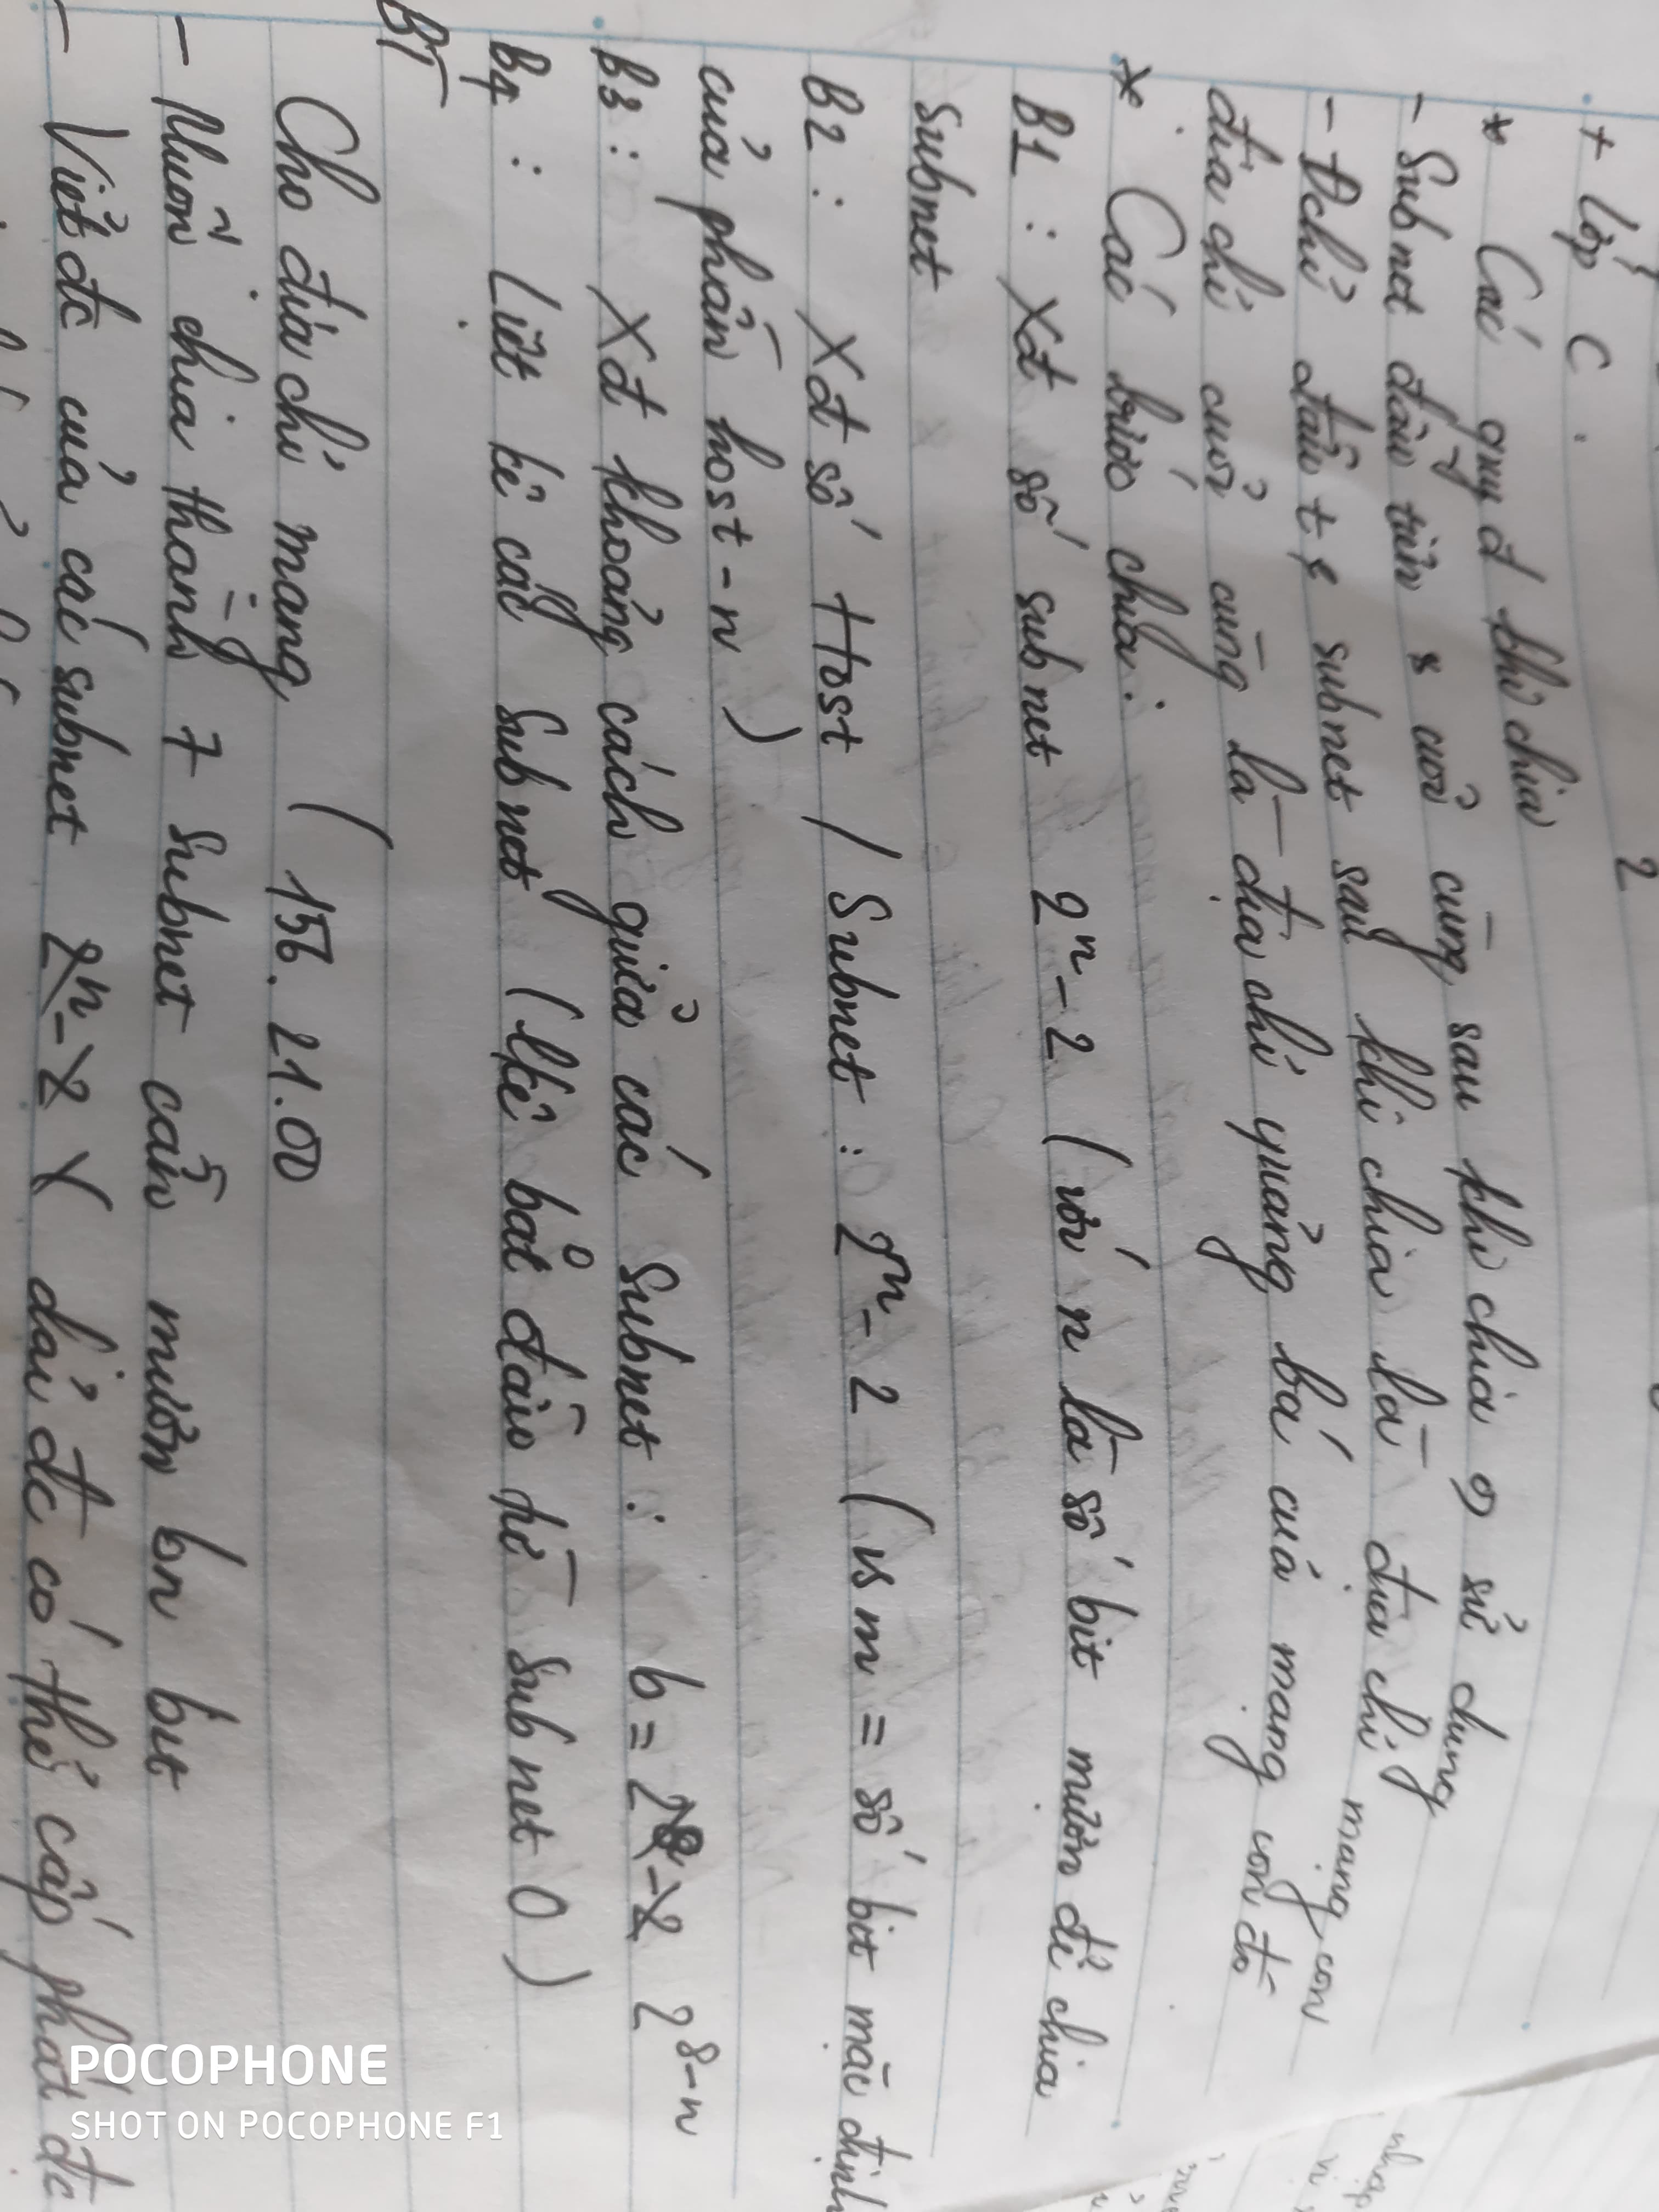 2
+ Lớp C.
* Các quy đ khi chia
- Subnet đầu tiên & cuối cùng sau khi chia sử dụng
- Đchỉ đầu t subnet sau khi chia là địa chỉ mạng con
địa chỉ cuối cùng là địa chỉ quảng bá của mạng con đó
* Các bước chia:
B1 : Xđ số subnet 2^n - 2 (với n là số bit mượn để chia
Subnet
B2 : Xđ số Host / Subnet : 2^m - 2 (vs m = số bit mặc định
của phần host - n )
B3 : Xđ khoảng cách giữa các Subnet : b = 2^(8-n)
B4 : Liệt kê các Subnet (lkê bắt đầu từ Subnet 0 )
BT
Cho địa chỉ mạng ( 156. 21.00
- Muốn chia thành 7 Subnet cần mượn bn bit
- Viết đc của các subnet dải đc có thể cấp phát đc
nhập
vi
POCOPHONE
SHOT ON POCOPHONE F1